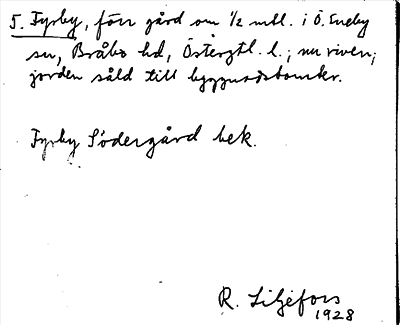 5. Fyrby, förr gård om 1/2 mtl. i Ö. Eneby
sn, Bråbo hd, Östergtl. l.; nu riven;
jorden såld till byggnadstomter.
Fyrby Södergård bek.
R. Liljefors
1928